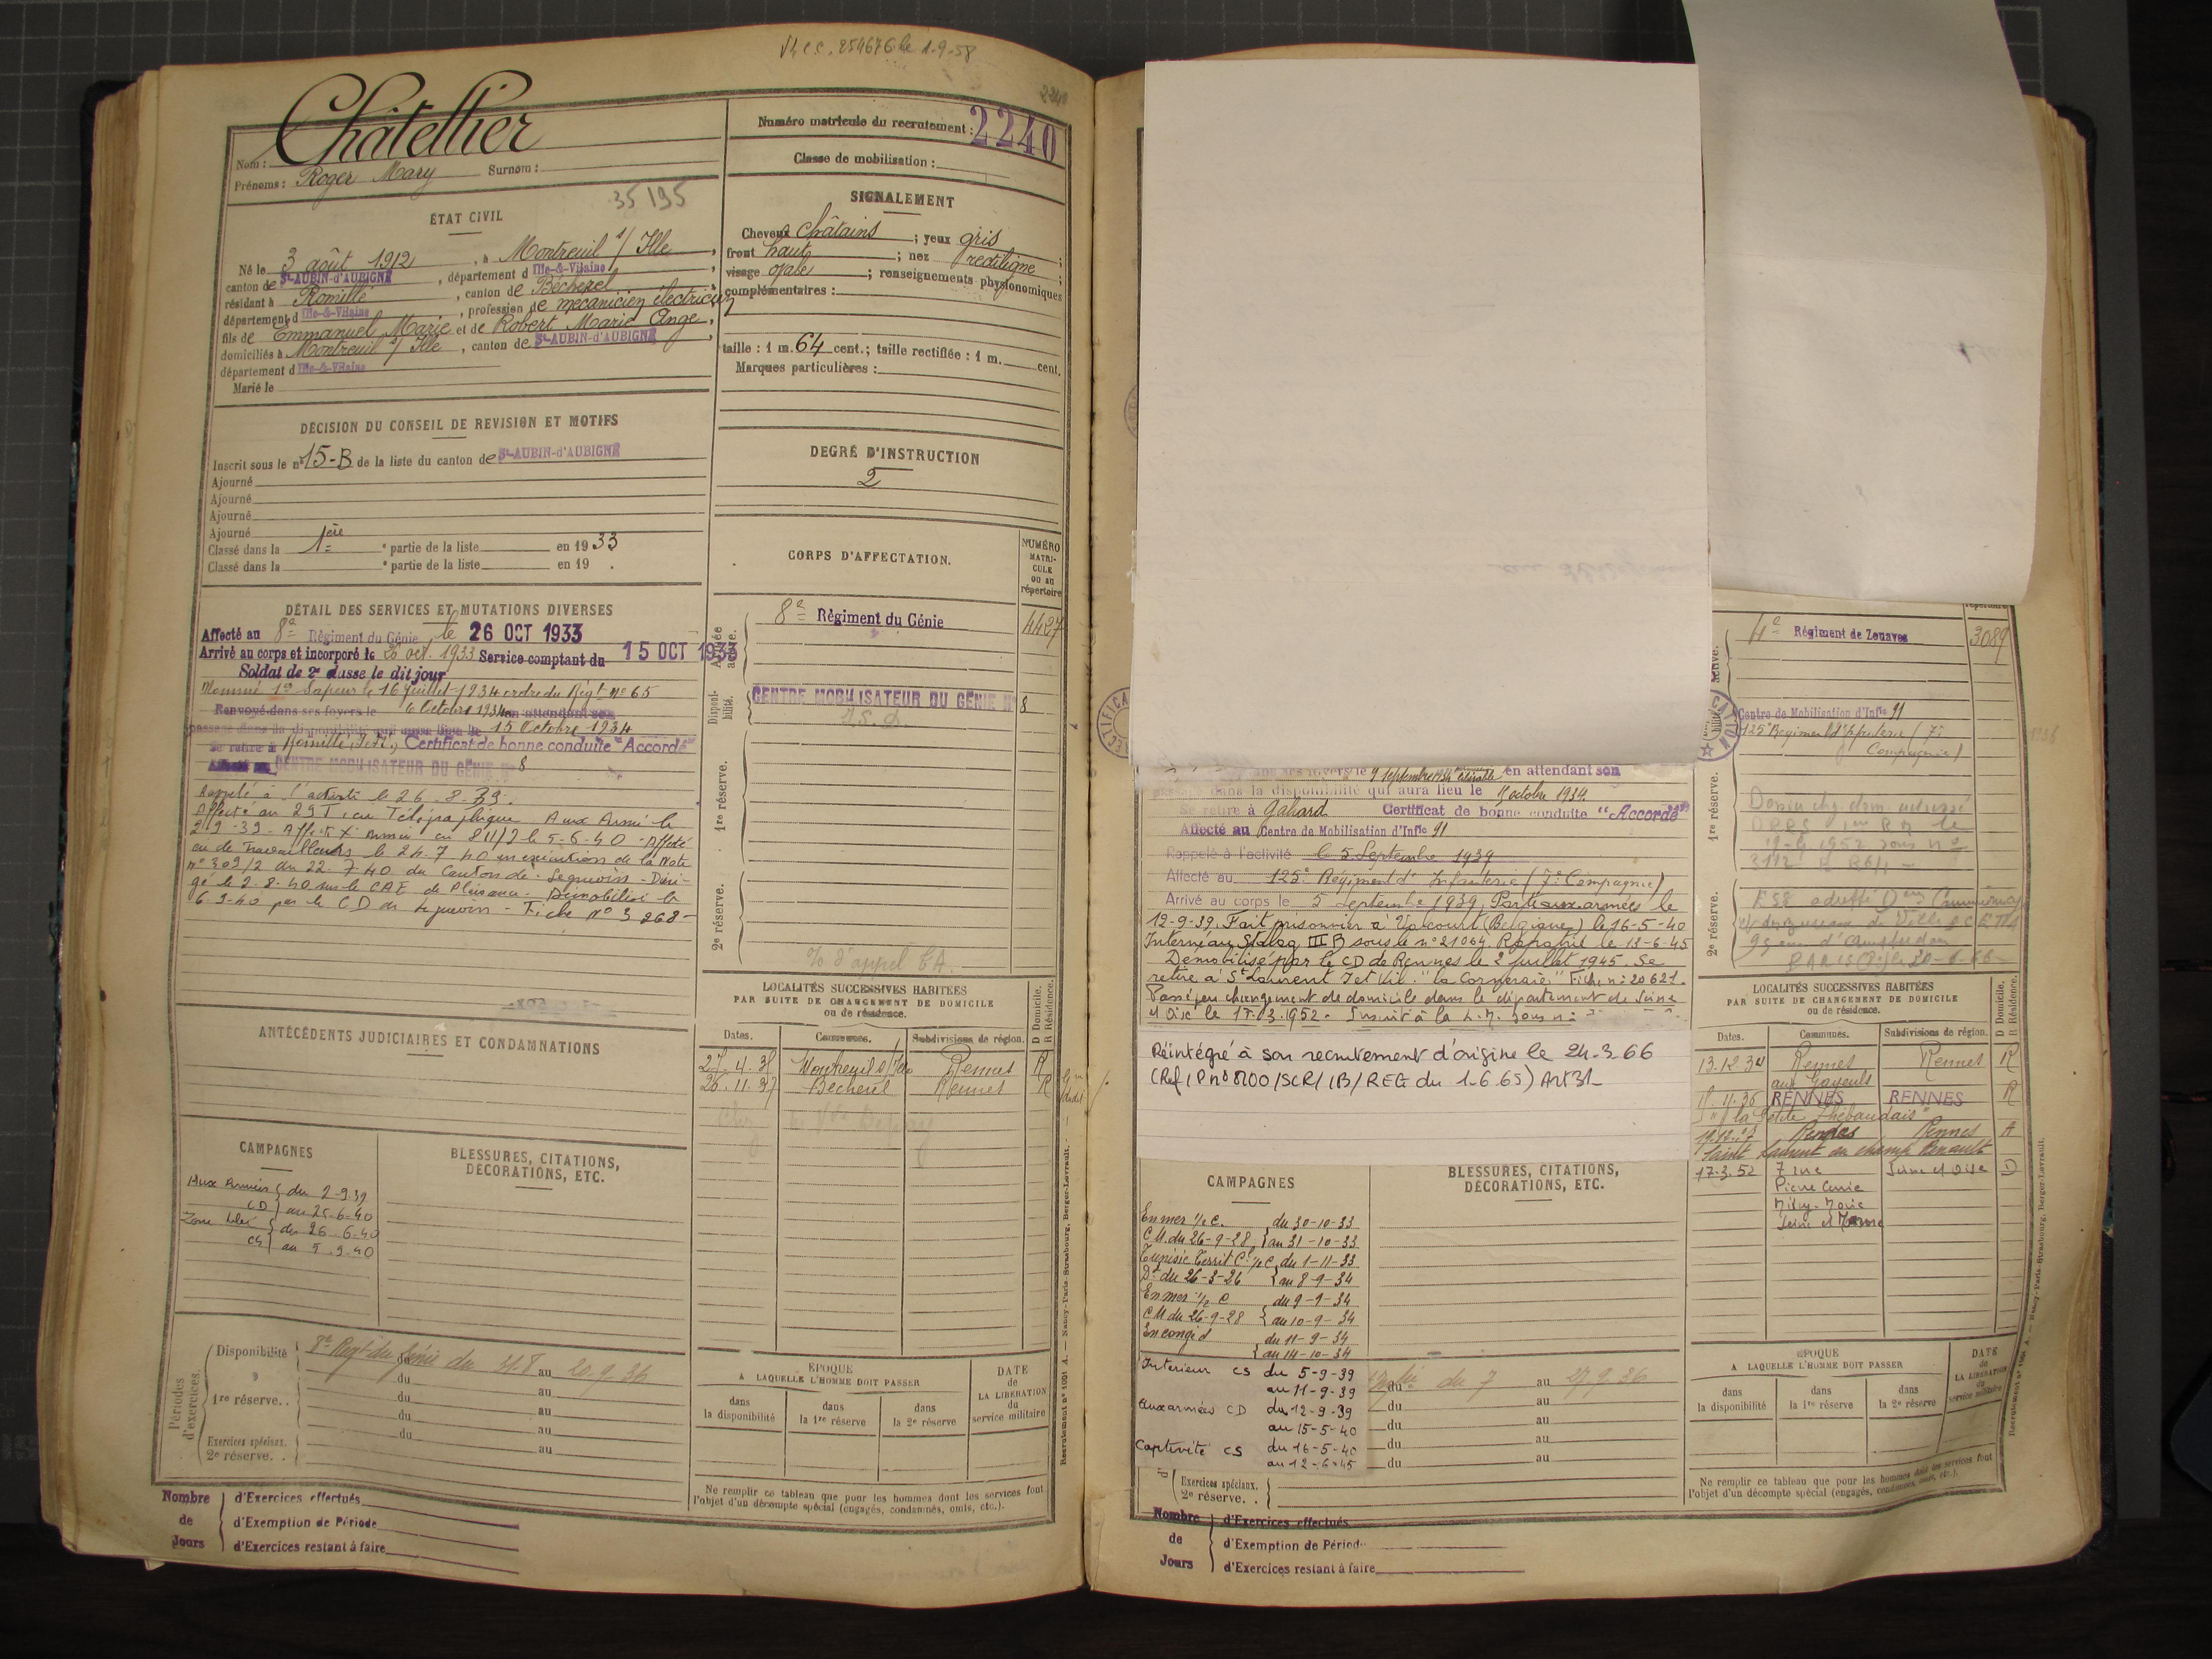 254676 le 1-9-58
2240
Châtellier
Nom :
Prénoms : Roger Mary Surnom :
35195
ÉTAT CIVIL
Né le 3 août 1912, à Montreuil s/ Ille,
canton de St-AUBIN-d'AUBIGNÉ, département d Ille-&-Vilaine,
résidant à Romillé, canton de Bécherel,
département d Ille-&-Vilaine, profession de mécanicien électricien
fils de Emmanuel Marie et de Robert Marie Ange,
domiciliés à Montreuil s/ Ille, canton de St-AUBIN-d'AUBIGNÉ,
département d Ille-&-Vilaine
Marié le
Numéro matricule du recrutement : 2240
Classe de mobilisation :
SIGNALEMENT
Cheveux châtains ; yeux gris ;
front haut ; nez rectiligne ;
visage ovale ; renseignements physionomiques
complémentaires :
taille : 1 m. 64 cent.; taille rectifiée : 1 m. cent.
Marques particulières :
DÉCISION DU CONSEIL DE REVISION ET MOTIFS
Inscrit sous le n° 15-B de la liste du canton de St-AUBIN-d'AUBIGNÉ
Ajourné
Ajourné
Ajourné
Ajourné
Classé dans la 1ère partie de la liste en 1933
Classé dans la e partie de la liste en 19 .
DEGRÉ D'INSTRUCTION
2
DÉTAIL DES SERVICES ET MUTATIONS DIVERSES
Affecté au 8e Régiment du Génie, le 26 OCT 1933
Arrivé au corps et incorporé le 26 oct. 1933 Service comptant du 15 OCT 1933
Soldat de 2e classe le dit jour
Nommé 1er Sapeur le 16 juillet 1934 ordre du Régt N° 65
Renvoyé dans ses foyers le 6 Octobre 1934 en attendant son
passage dans la disponibilité qui aura lieu le 15 Octobre 1934
Se retire à Romillé, I.&V., Certificat de bonne conduite "Accordé"
Affecté au CENTRE MOBILISATEUR DU GÉNIE N° 8
Rappelé à l'activité le 26.8.39.
Affecté au 29 T, Cie Télégraphique Aux Armées le
2-9-39. Affecté X Armée Cie 811/2 le 5-6-40 - Affecté
Cie de Travailleurs le 24.7 40 en exécution de la Note
n° 309/2 du 22.7.40 du Canton de Leguevin - Diri-
gé le 2-8-40 sur le CAE de Plaisance. Démobilisé le
6 9-40 par le CD de Leguevin - Fiche N° 3 268-
CORPS D'AFFECTATION.
NUMÉRO MATRI-CULE OU AU répertoire
Armée active.
8e Régiment du Génie 4427
Disponi-bilité.
CENTRE MOBILISATEUR DU GÉNIE N° 8
1re réserve.
2e réserve.
ANTÉCÉDENTS JUDICIAIRES ET CONDAMNATIONS
LOCALITÉS SUCCESSIVES HABITÉES
PAR SUITE DE CHANGEMENT DE DOMICILE
ou de résidence.
D Domicile. R Résidence.
Dates. Communes. Subdivisions de région.
Montreuil s/ Ille Rennes R
26.11.37 Bécherel Rennes R
CAMPAGNES
Aux Armées CD du 2-9-39
au 25-6-40
Zone libre CS du 26-6-40
au 5-9-40
BLESSURES, CITATIONS,
DÉCORATIONS, ETC.
Périodes d'exercices.
Disponibilité 8e Régt du Génie du 31.8 au 20.9.36
du au
1re réserve. . du au
du au
du au
Exercices spéciaux. au
2e réserve. .
ÉPOQUE
A LAQUELLE L'HOMME DOIT PASSER
dans la disponibilité
dans la 1re réserve
dans la 2e réserve
DATE de LA LIBÉRATION du service militaire
Ne remplir ce tableau que pour les hommes dont les services font
l'objet d'un décompte spécial (engagés, condamnés, omis, etc.).
Nombre de Jours
d'Exercices effectués
d'Exemption de Période
d'Exercices restant à faire
Recrutement n° 1001 A. — Nancy-Paris-Strasbourg, Berger-Levrault.
dans ses foyers le 9 septembre 1934 en attendant son
passage dans la disponibilité qui aura lieu le 15 octobre 1934.
Se retire à Gahard Certificat de bonne conduite "Accordé"
Affecté au Centre de Mobilisation d'Infie 91
Rappelé à l'activité le 5 Septembre 1939
Affecté au 125e Régiment d'Infanterie (7e Compagnie)
Arrivé au corps le 5 septembre 1939. Parti aux armées le
12-9-39. Fait prisonnier à (Belgique) le 16-5-40
Interné au Stalag III B sous le n° 21064. Rapatrié le 13-6-45
Démobilisé par le CD de Rennes le 2 juillet 1945. Se
retire à St Laurent I et Vil. "la Cormeraie" Fiche n° 20621.
Passé par changement de domicile dans le département de Seine
et Oise le 17.03.1952. Inscrit à la L.M. sous n°
Réintégré à son recrutement d'origine le 24-3-66
(Ref. I P n° 8100/SCR/1B/REG du 1-6.65) Art 31-
répertoire
4e Régiment de Zouaves 3089
Centre de Mobilisation d'Infie 91
125e Régiment d'Infanterie (7e
Compagnie)
1re réserve.
2e réserve.
LOCALITÉS SUCCESSIVES HABITÉES
PAR SUITE DE CHANGEMENT DE DOMICILE
ou de résidence.
D Domicile. R Résidence.
Dates. Communes. Subdivisions de région.
13.12.34 Rennes Rennes R
aux Gayeuls
RENNES RENNES R
"la Petite Thébaudais"
Rennes Rennes
Saint Laurent au champ Renault
17-3.52 7 rue Seine et Oise D
Pierre Curie
CAMPAGNES
En mer 1/2 C. du 30-10-33
C.M. du 26-9-28 au 31-10-33
Tunisie Territ Cl 1/2 C du 1-11-33
Dt du 26-3-26 au 8-9-34
En mer 1/2 C du 9-9-34
C.M. du 26-9-28 au 10-9-34
En congé d du 11-9-34
au 14-10-34
Intérieur CS du 5-9-39
au 11-9-39
Aux armées CD du 12-9-39
au 15-5-40
Captivité CS du 16-5-40
au 12-6-45
BLESSURES, CITATIONS,
DÉCORATIONS, ETC.
du 7 au 27.9.36
du au
du au
du au
du au
Exercices spéciaux.
2e réserve. .
ÉPOQUE
A LAQUELLE L'HOMME DOIT PASSER
dans la disponibilité
dans la 1re réserve
dans la 2e réserve
DATE de LA LIBÉRATION du service militaire
Ne remplir ce tableau que pour les hommes dont les services font
l'objet d'un décompte spécial (engagés, condamnés, omis, etc.).
Nombre de Jours
d'Exercices effectués
d'Exemption de Période
d'Exercices restant à faire